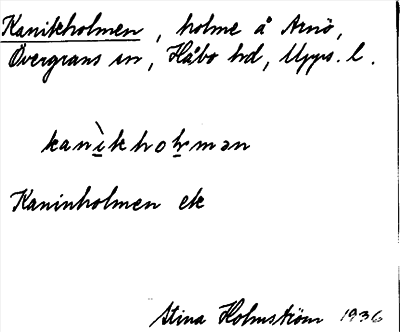 Kanikholmen, holme å Arnö,
Övergrans sn, Håbo hd, Upps. l.
kanìkholmən
Kaninholmen ek
Stina Holmström 1936